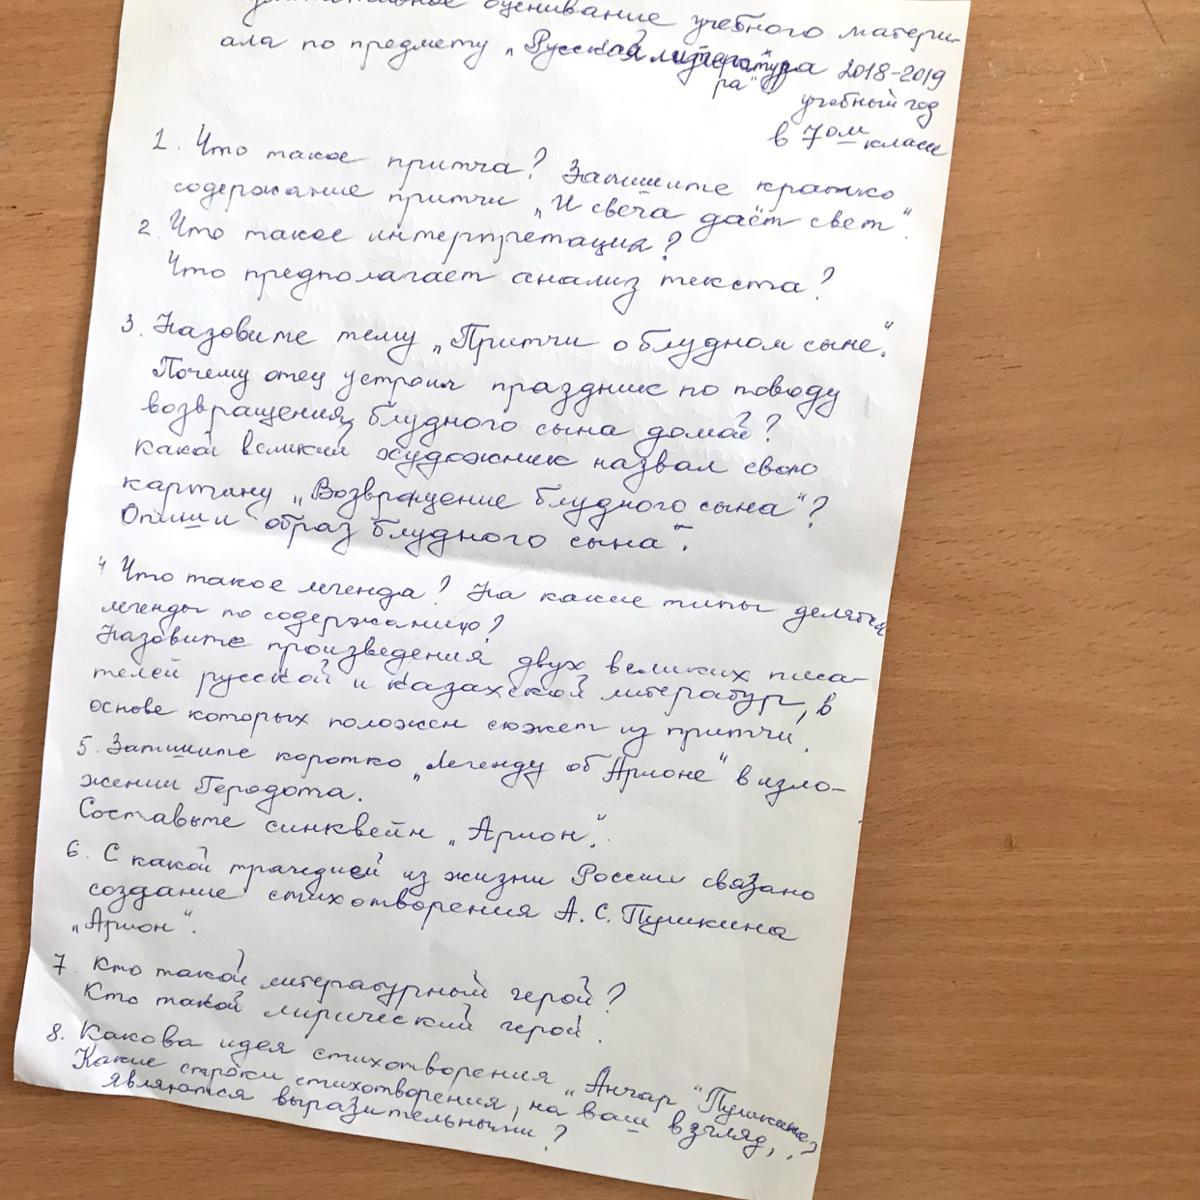 оценивание учебного матери-
ала по предмету „Русская литература 2018-2019
ра"
учебный год
в 7ом классе
1. Что такое притча? Запишите кратко
содержание притчи „И свеча даёт свет".
2. Что такое интерпретация?
Что предполагает анализ текста?
3. Назовите тему „Притчи о блудном сыне".
Почему отец устроил праздник по поводу
возвращения блудного сына домой?
Какой великий художник назвал свою
картину „Возвращение блудного сына"?
Опиши образ блудного сына".
4 Что такое легенда? На какие типы делятся
легенды по содержанию?
Назовите произведения двух великих писа-
телей русской и казахской литератур, в
основе которых положен сюжет из притчи.
5. Запишите коротко „Легенду об Арионе" в изло-
жении Геродота.
Составьте синквейн „Арион".
6. С какой трагедией из жизни России связано
создание стихотворения А. С. Пушкина
„Арион".
7. Кто такой литературный герой?
Кто такой лирический герой.
8. Какова идея стихотворения „Анчар" Пушкина?
Какие строки стихотворения, на ваш взгляд,
являются выразительными?